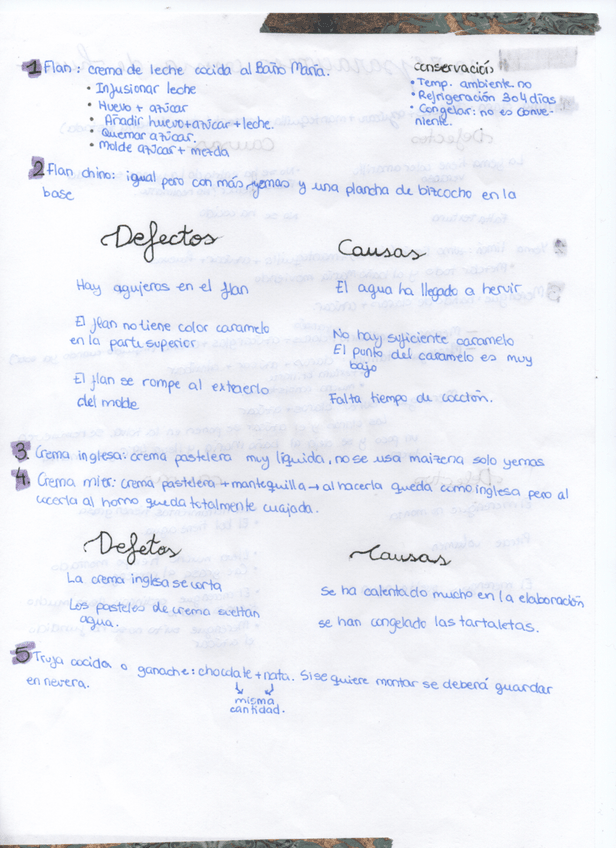 1 Flan: crema de leche cocida al Baño María.
• Infusionar leche
• Huevo + azúcar
• Añadir huevo+azúcar+leche.
• Quemar azúcar.
• Molde azúcar + mezcla
conservación
• Temp. ambiente no
• Refrigeración 3o4 días
• Congelar: no es conve-
niente.
2 Flan chino: igual pero con más yemas y una plancha de bizcocho en la
base
Defectos
Causas
Hay agujeros en el flan
El agua ha llegado a hervir
El flan no tiene color caramelo
en la parte superior
No hay suficiente caramelo
El punto del caramelo es muy
bajo
El flan se rompe al extraerlo
del molde
Falta tiempo de cocción.
3. Crema inglesa: crema pastelera muy líquida, no se usa maizena solo yemas
4. Crema mier: crema pastelera + mantequilla → al hacerla queda como inglesa pero al
cocerla al horno queda totalmente cuajada.
Defetos
Causas
La crema inglesa se corta
Se ha calentado mucho en la elaboración
Los pasteles de crema sueltan
agua.
se han congelado las tartaletas.
5 Truja cocida o ganache: chocolate + nata. Si se quiere montar se deberá guardar
en nevera.
misma
cantidad.